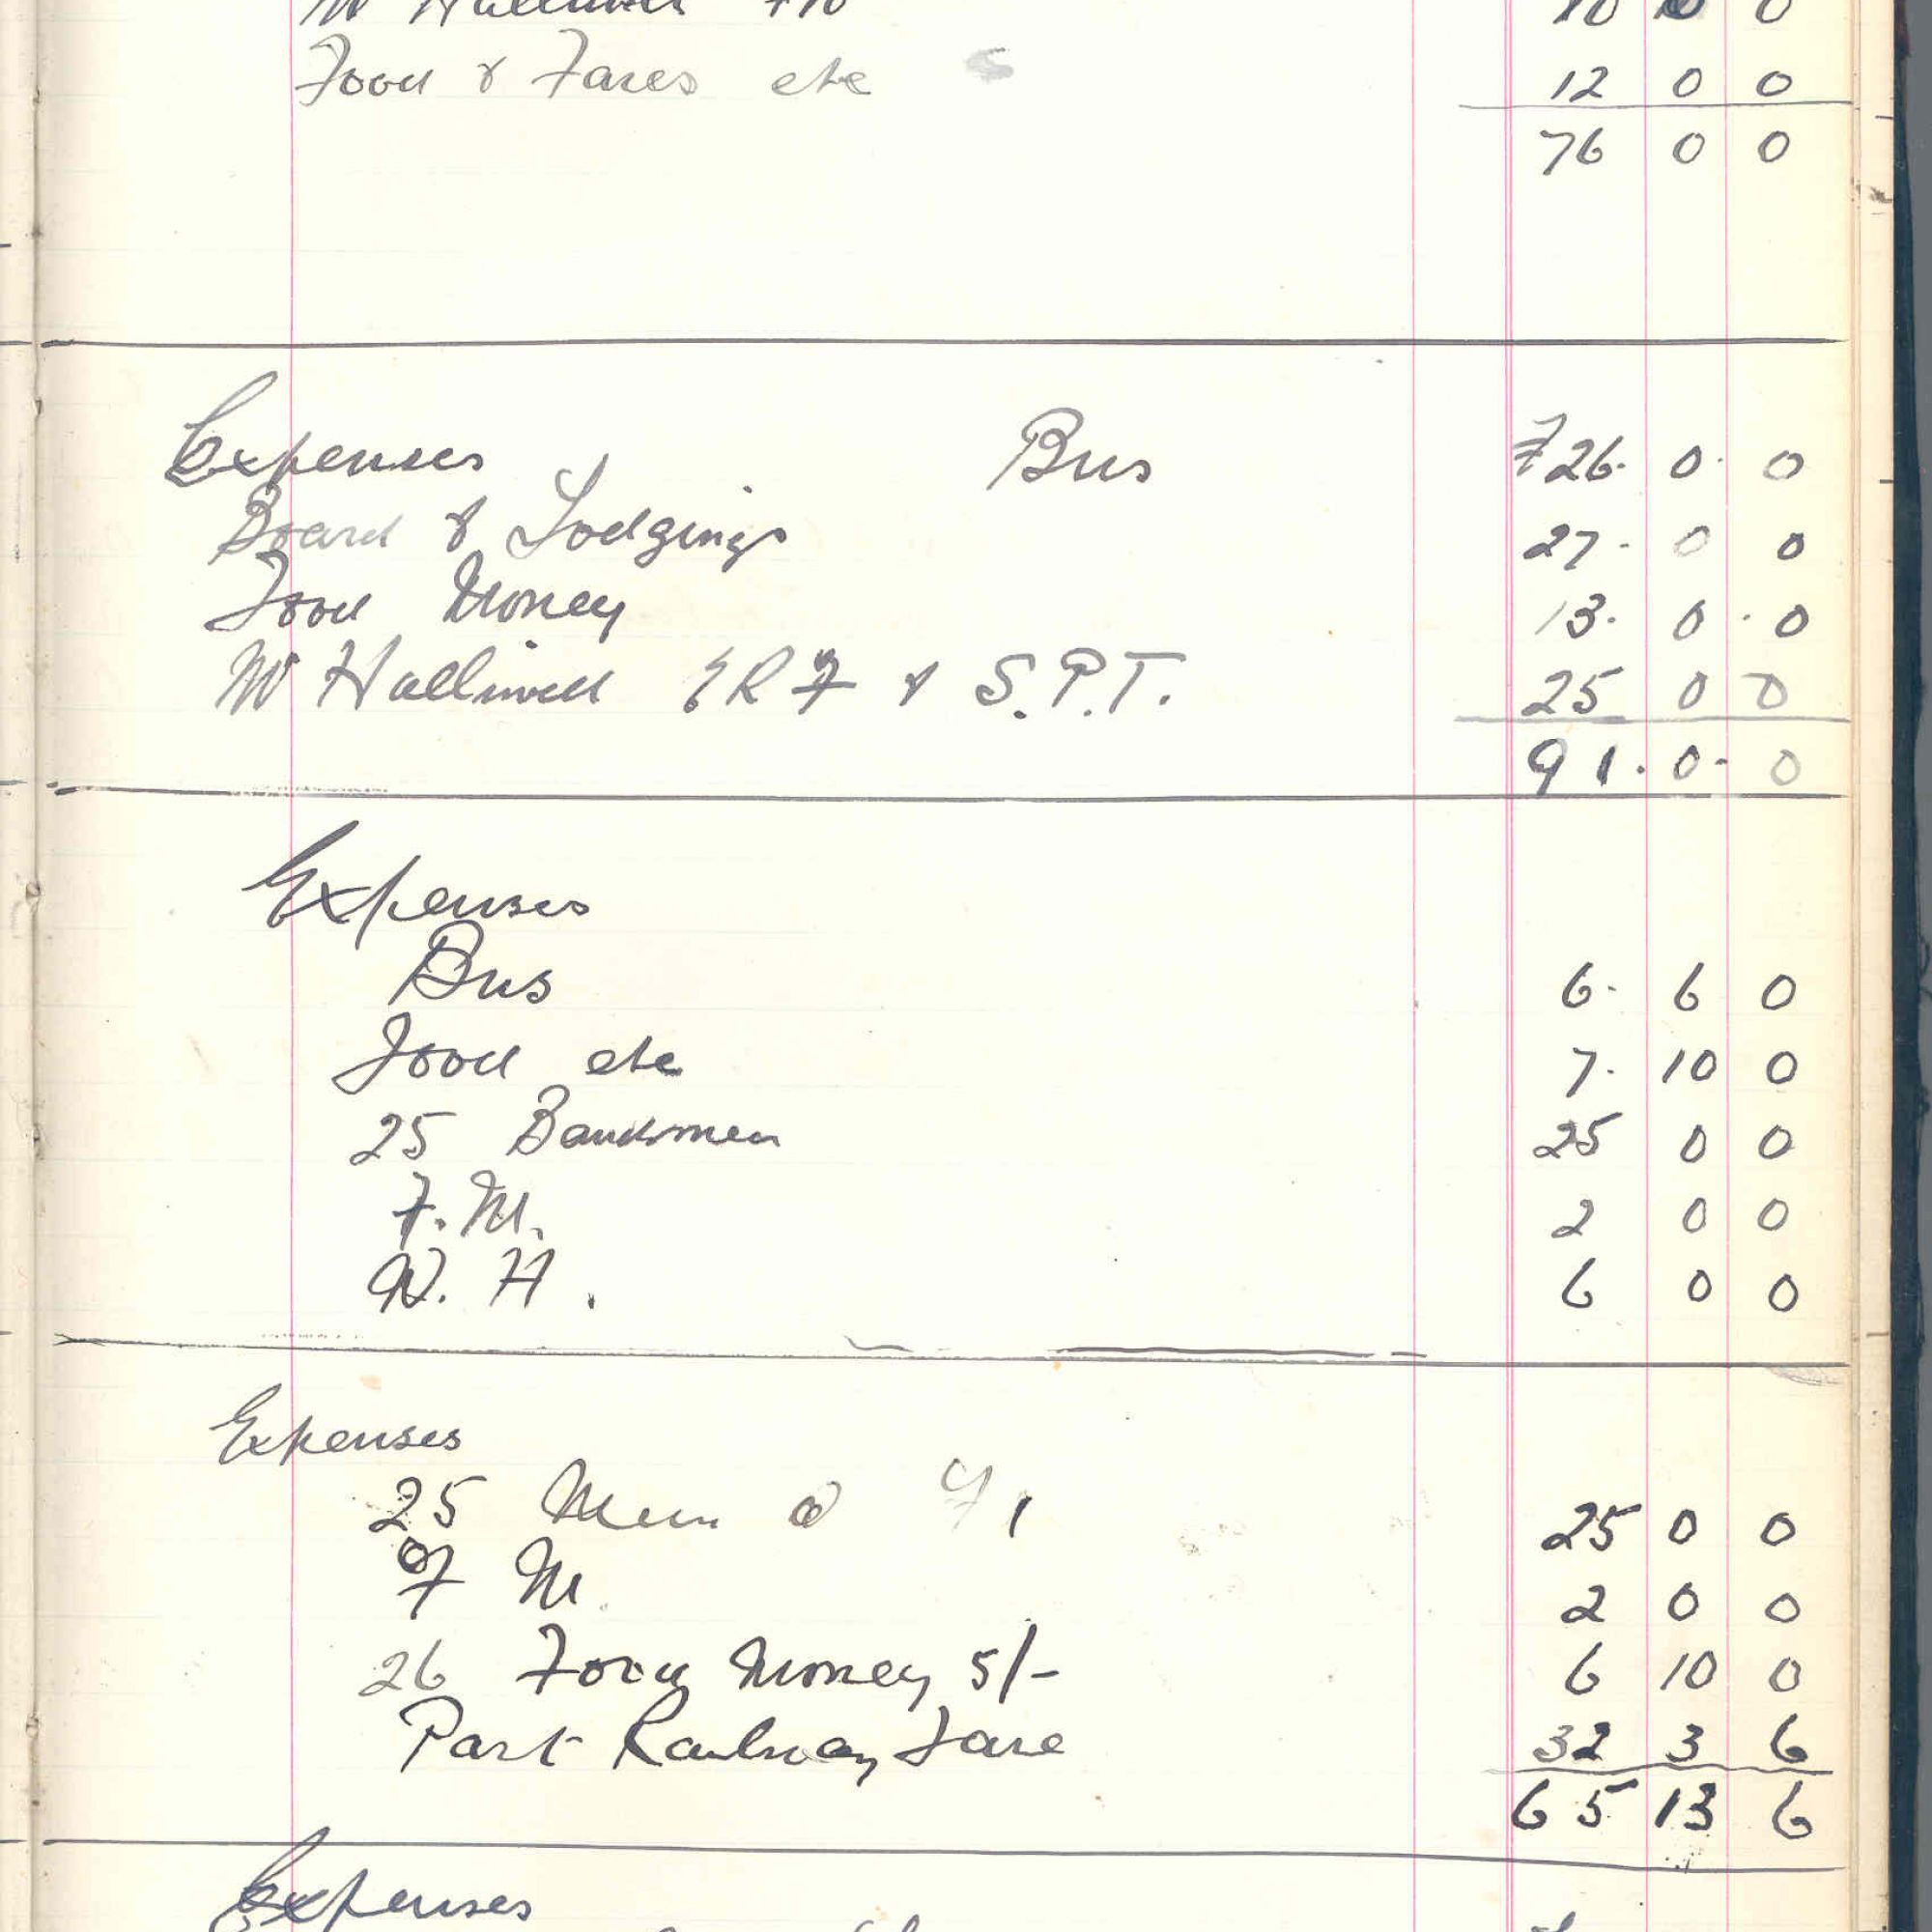 W Halliwell £10 10 0 0
Food & Fares etc 12 0 0
76 0 0
Expenses Bus £26. 0. 0
Board & Lodgings 27. 0 0
Food Money 13. 0. 0
W Halliwell & S.P.T. 25 0 0
91. 0. 0
Expenses
Bus 6. 6 0
Food etc 7. 10 0
25 Bandsmen 25 0 0
F. M. 2 0 0
W. H. 6 0 0
Expenses
25 Men @ £1 25 0 0
F M 2 0 0
26 Food Money 5/- 6 10 0
Part Railway Fare 32 3 6
65 13 6
Expenses